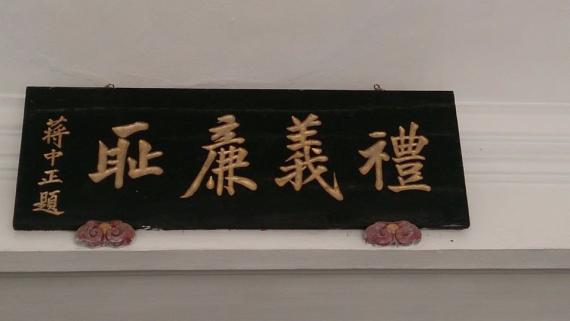 禮義廉恥
蔣中正題